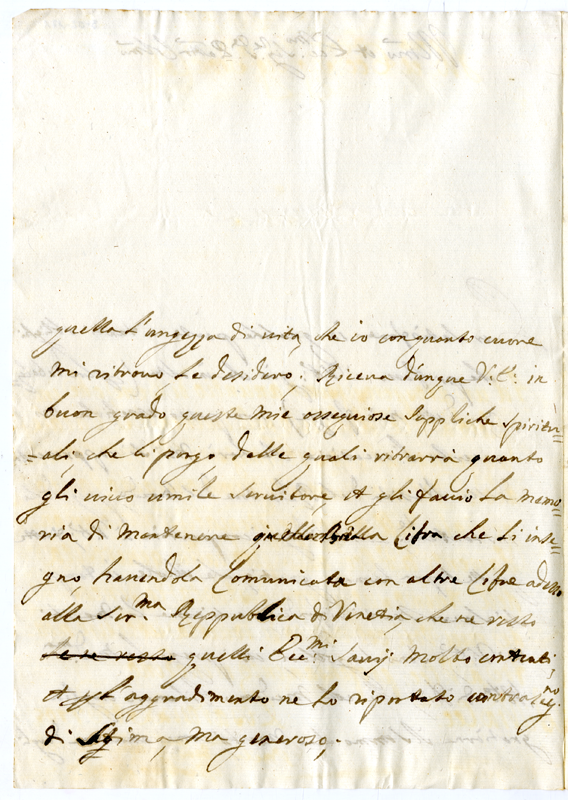 quella Lungezza di uita, che io con quanto cuore
mi ritrouo, Le desidero; Riceua dunque V.E. in
buon grado queste mie ossequiose suppliche spiritu=
=ali, che le porgo, dalle quali ritrarrà quanto
gli uiuo umile seruitore, et gli faccio La memo=
ria di mantenere la Cifra che Li inse=
gno, hauendola Comunicata con altre Cifre
alla Ser.ma Reppublica di Venetia, che ne resto
quelli Ecc.mi Sauij molto contenti,
et L'aggradimento ne Lo riportato contra
di stima, ma generoso,